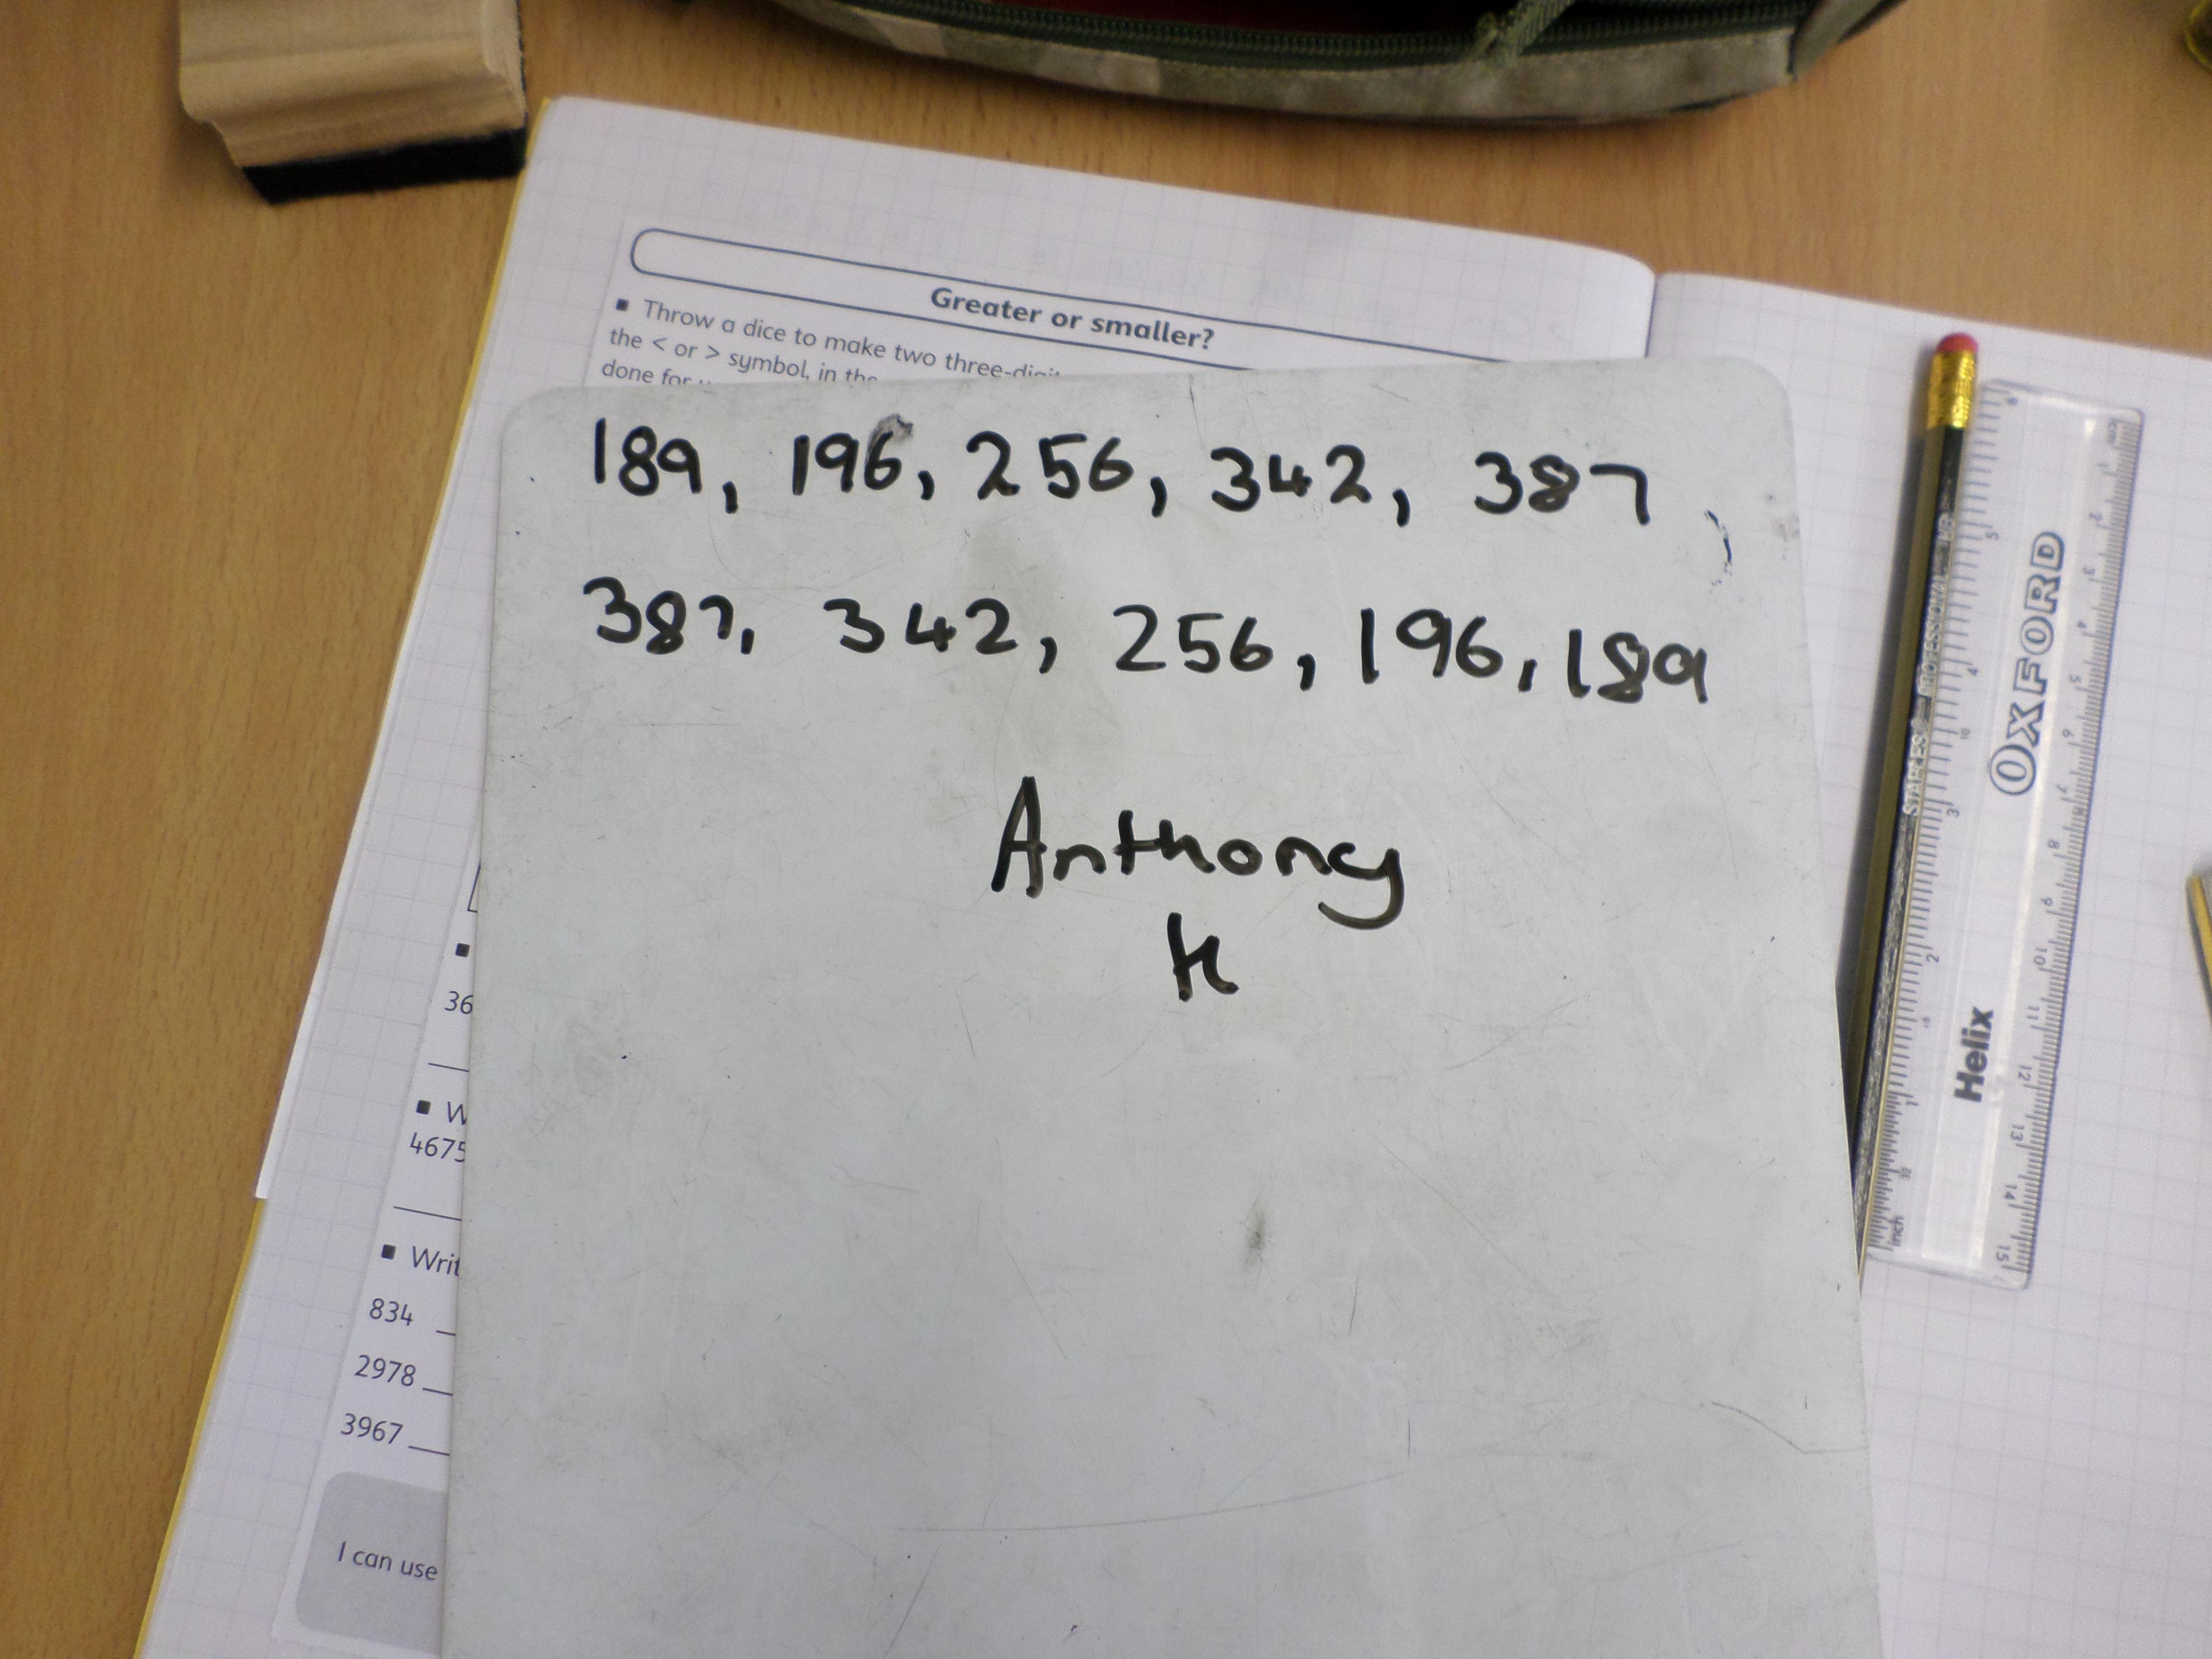 Greater or smaller?
▪ Throw a dice to make two three-digit
the < or > symbol, in the
done for
189, 196, 256, 342, 387,
387, 342, 256, 196, 189
Anthony
H
36
▪ W
4675
▪ Writ
834
2978
3967
I can use
STAEDTLER PROFESSIONAL
OXFORD
Helix
cm 1 2 3 4 5 6 7 8 9 10 11 12 13 14 15
inch 1 2 3 4 5 6